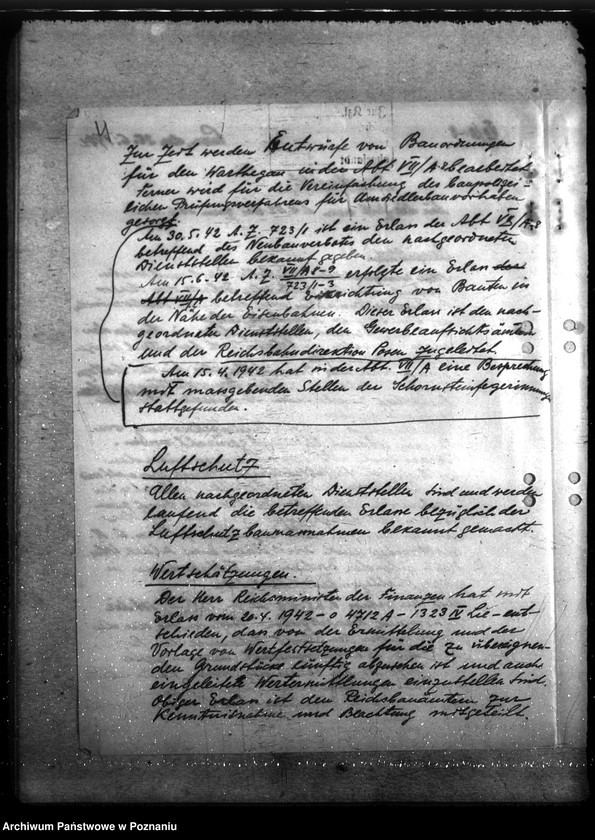 Zur Zeit werden Entwürfe von Bauordnungen
für den Warthegau in der Abt. VII/A bearbeitet.
Ferner wird für die Vereinfachung des baupolizei-
lichen Prüfungsverfahrens für Ansiedlerbauvorhaben
gesorgt.
Am 30.5.42 A.Z. 723/1 ist ein Erlass der Abt VII/A-8
betreffend des Neubauverbots den nachgeordneten
Dienststellen bekannt gegeben.
Am 15.6.42 A.Z. VII/A8-9 723/1-3 erfolgte ein Erlass der
Abt VII/A betreffend Errichtung von Bauten in
der Nähe der Eisenbahnen. Dieser Erlass ist den nach-
geordneten Dienststellen, den Gewerbeaufsichtsämtern
und der Reichsbahndirektion Posen zugeleitet.
Am 15.4.1942 hat in der Abt. VII/A eine Besprechung
mit massgebenden Stellen der Schornsteinfegerinnung
stattgefunden.
Luftschutz
Allen nachgeordneten Dienststellen sind und werden
laufend die betreffenden Erlasse bezüglich der
Luftschutzbaumassnahmen bekannt gemacht.
Wertschätzungen.
Der Herr Reichsminister der Finanzen hat mit
Erlass vom 20.4.1942 - O 4712 A - 1323 IV Lie - ent-
schieden, dass von der Ermittlung und der
Vorlage von Wertfestsetzungen für die zu übereignen-
den Grundstücke künftig abzusehen ist und auch
eingeleitete Wertermittlungen einzustellen sind.
Obiger Erlass ist den Reichsbauämtern zur
Kenntnisnahme und Beachtung mitgeteilt.
Archiwum Państwowe w Poznaniu